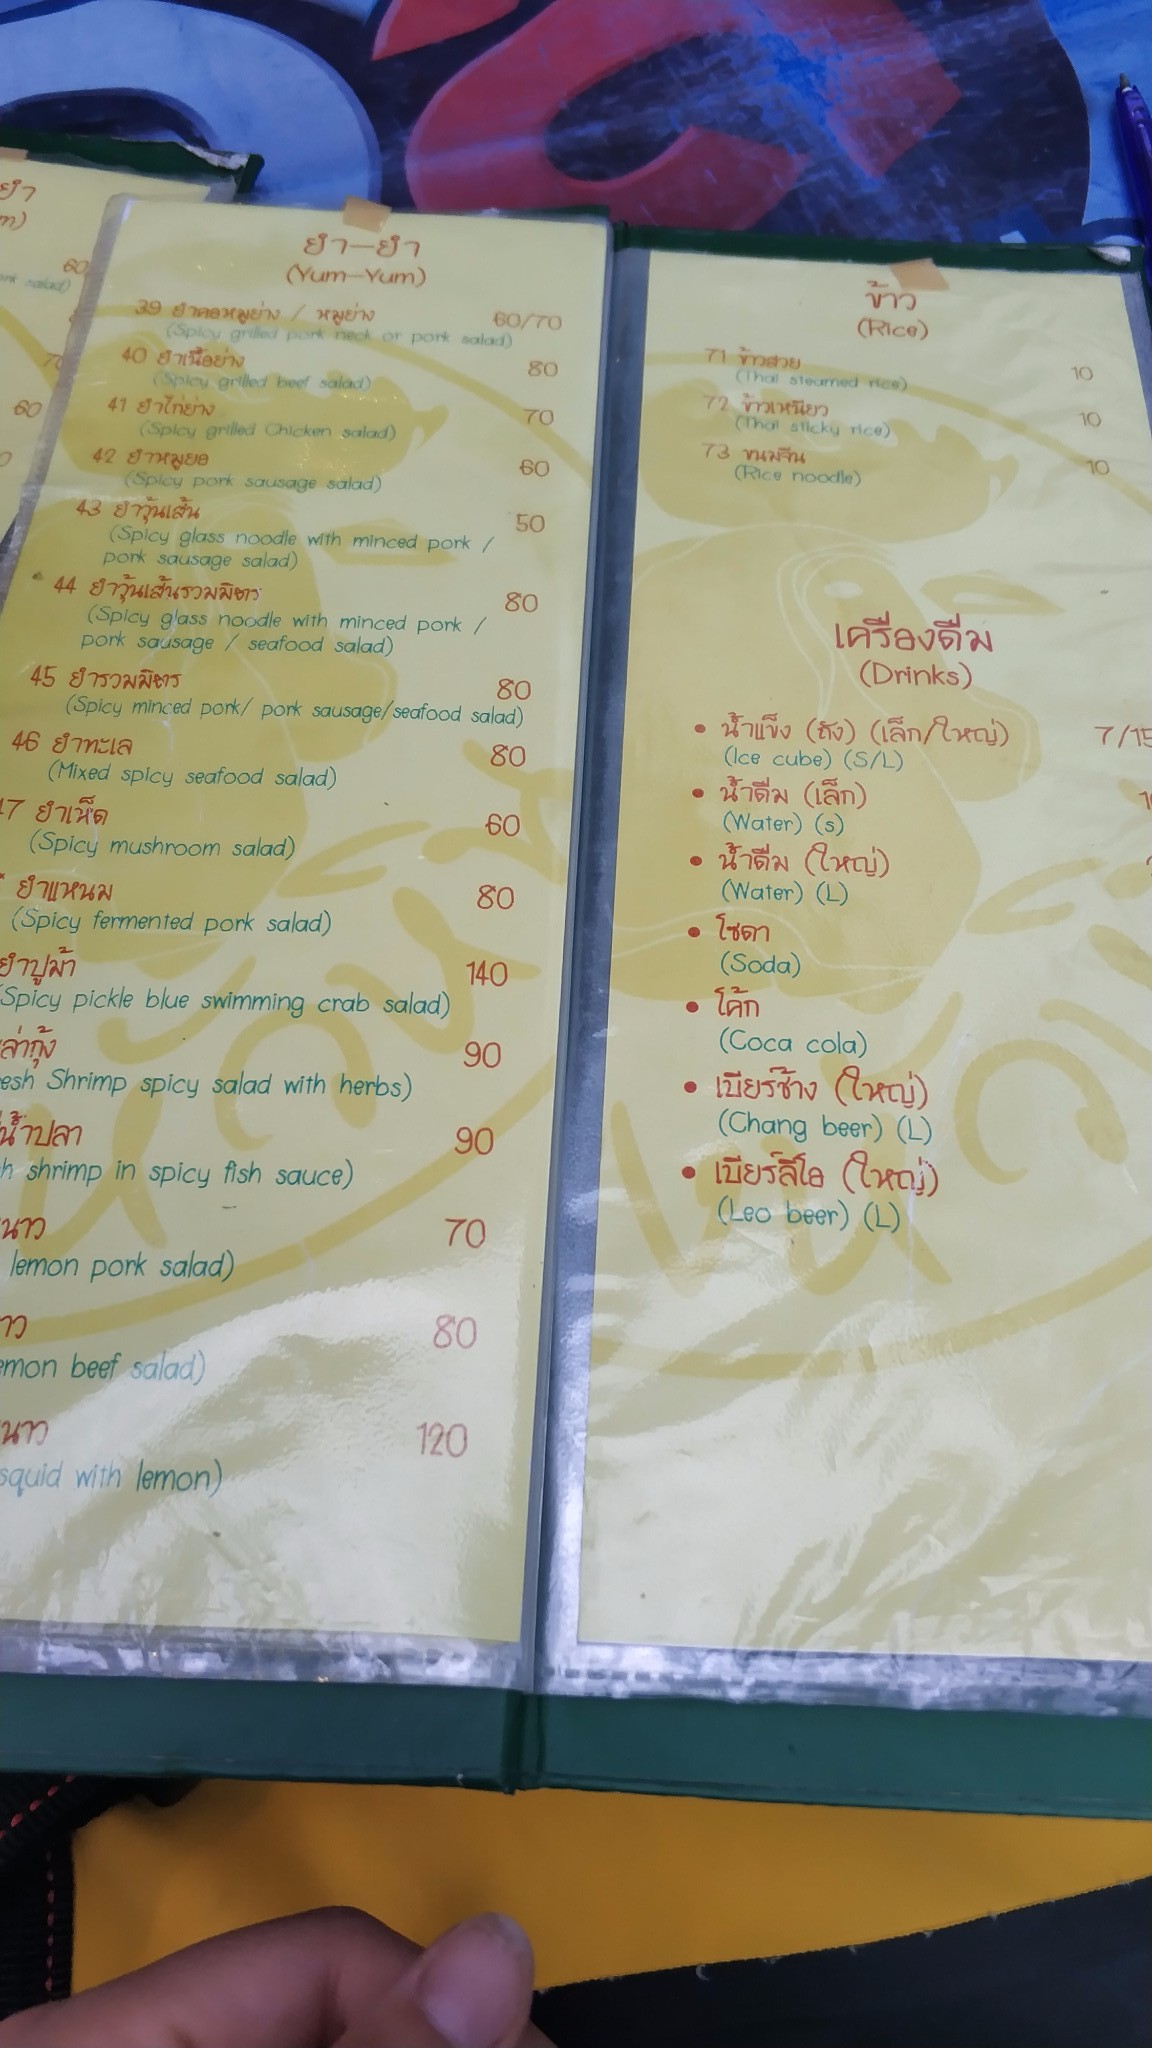 ยำ
60
70
60
ยำ-ยำ
(Yum-Yum)
39 ยำคอหมูย่าง / หมูย่าง 60/70
(Spicy grilled pork neck or pork salad)
40 ยำเนื้อย่าง 80
(Spicy grilled beef salad)
41 ยำไก่ย่าง 70
(Spicy grilled Chicken salad)
42 ยำหมูยอ 60
(Spicy pork sausage salad)
43 ยำวุ้นเส้น 50
(Spicy glass noodle with minced pork /
pork sausage salad)
44 ยำวุ้นเส้นรวมมิตร 80
(Spicy glass noodle with minced pork /
pork sausage / seafood salad)
45 ยำรวมมิตร 80
(Spicy minced pork/ pork sausage/seafood salad)
46 ยำทะเล 80
(Mixed spicy seafood salad)
7 ยำเห็ด 60
(Spicy mushroom salad)
ยำแหนม 80
(Spicy fermented pork salad)
ยำปูม้า 140
(Spicy pickle blue swimming crab salad)
ล่ากุ้ง 90
esh Shrimp spicy salad with herbs)
น้ำปลา 90
h shrimp in spicy fish sauce)
นาว 70
lemon pork salad)
าว 80
emon beef salad)
นาว 120
squid with lemon)
ข้าว
(Rice)
71 ข้าวสวย 10
(Thai steamed rice)
72 ข้าวเหนียว 10
(Thai sticky rice)
73 ขนมจีน 10
(Rice noodle)
เครื่องดื่ม
(Drinks)
• น้ำแข็ง (ถัง) (เล็ก/ใหญ่) 7/15
(Ice cube) (S/L)
• น้ำดื่ม (เล็ก)
(Water) (s)
• น้ำดื่ม (ใหญ่)
(Water) (L)
• โซดา
(Soda)
• โค้ก
(Coca cola)
• เบียร์ช้าง (ใหญ่)
(Chang beer) (L)
• เบียร์ลีโอ (ใหญ่)
(Leo beer) (L)